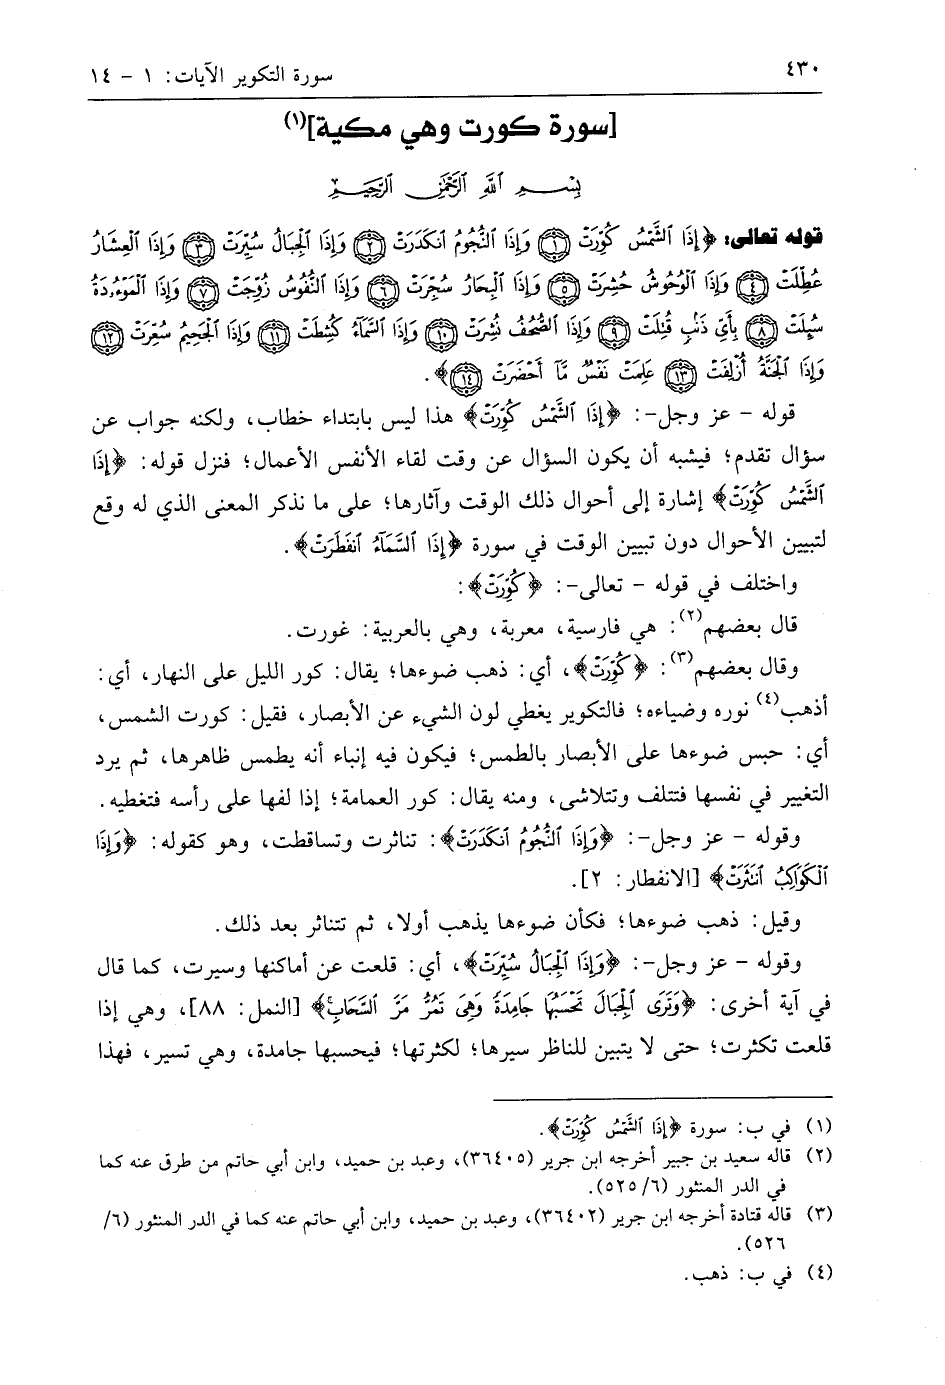 ٤٣٠
سورة التكوير الآيات: ١ - ١٤
[سورة كورت وهي مكية](١)
بِسْمِ ٱللَّهِ ٱلرَّحْمَٰنِ ٱلرَّحِيمِ
قوله تعالى: ﴿إِذَا ٱلشَّمْسُ كُوِّرَتْ ۝١ وَإِذَا ٱلنُّجُومُ ٱنكَدَرَتْ ۝٢ وَإِذَا ٱلْجِبَالُ سُيِّرَتْ ۝٣ وَإِذَا ٱلْعِشَارُ
عُطِّلَتْ ۝٤ وَإِذَا ٱلْوُحُوشُ حُشِرَتْ ۝٥ وَإِذَا ٱلْبِحَارُ سُجِّرَتْ ۝٦ وَإِذَا ٱلنُّفُوسُ زُوِّجَتْ ۝٧ وَإِذَا ٱلْمَوْءُۥدَةُ
سُئِلَتْ ۝٨ بِأَيِّ ذَنۢبٍ قُتِلَتْ ۝٩ وَإِذَا ٱلصُّحُفُ نُشِرَتْ ۝١٠ وَإِذَا ٱلسَّمَآءُ كُشِطَتْ ۝١١ وَإِذَا ٱلْجَحِيمُ سُعِّرَتْ ۝١٢
وَإِذَا ٱلْجَنَّةُ أُزْلِفَتْ ۝١٣ عَلِمَتْ نَفْسٌ مَّآ أَحْضَرَتْ ۝١٤﴾.
قوله - عز وجل-: ﴿إِذَا ٱلشَّمْسُ كُوِّرَتْ﴾ هذا ليس بابتداء خطاب، ولكنه جواب عن
سؤال تقدم؛ فيشبه أن يكون السؤال عن وقت لقاء الأنفس الأعمال؛ فنزل قوله: ﴿إِذَا
ٱلشَّمْسُ كُوِّرَتْ﴾ إشارة إلى أحوال ذلك الوقت وآثارها؛ على ما نذكر المعنى الذي له وقع
لتبيين الأحوال دون تبيين الوقت في سورة ﴿إِذَا ٱلسَّمَآءُ ٱنفَطَرَتْ﴾.
واختلف في قوله - تعالى-: ﴿كُوِّرَتْ﴾:
قال بعضهم(٢): هي فارسية، معربة، وهي بالعربية: غورت.
وقال بعضهم(٣): ﴿كُوِّرَتْ﴾، أي: ذهب ضوءها؛ يقال: كور الليل على النهار، أي:
أذهب(٤) نوره وضياءه؛ فالتكوير يغطي لون الشيء عن الأبصار، فقيل: كورت الشمس،
أي: حبس ضوءها على الأبصار بالطمس؛ فيكون فيه إنباء أنه يطمس ظاهرها، ثم يرد
التغيير في نفسها فتتلف وتتلاشى، ومنه يقال: كور العمامة؛ إذا لفها على رأسه فتغطيه.
وقوله - عز وجل-: ﴿وَإِذَا ٱلنُّجُومُ ٱنكَدَرَتْ﴾: تناثرت وتساقطت، وهو كقوله: ﴿وَإِذَا
ٱلْكَوَاكِبُ ٱنتَثَرَتْ﴾ [الانفطار: ٢].
وقيل: ذهب ضوءها؛ فكأن ضوءها يذهب أولا، ثم تتناثر بعد ذلك.
وقوله - عز وجل-: ﴿وَإِذَا ٱلْجِبَالُ سُيِّرَتْ﴾، أي: قلعت عن أماكنها وسيرت، كما قال
في آية أخرى: ﴿وَتَرَى ٱلْجِبَالَ تَحْسَبُهَا جَامِدَةً وَهِىَ تَمُرُّ مَرَّ ٱلسَّحَابِ﴾ [النمل: ٨٨]، وهي إذا
قلعت تكثرت؛ حتى لا يتبين للناظر سيرها؛ لكثرتها؛ فيحسبها جامدة، وهي تسير، فهذا
(١) في ب: سورة ﴿إِذَا ٱلشَّمْسُ كُوِّرَتْ﴾.
(٢) قاله سعيد بن جبير أخرجه ابن جرير (٣٦٤٠٥)، وعبد بن حميد، وابن أبي حاتم من طرق عنه كما
في الدر المنثور (٦/ ٥٢٥).
(٣) قاله قتادة أخرجه ابن جرير (٣٦٤٠٢)، وعبد بن حميد، وابن أبي حاتم عنه كما في الدر المنثور (٦/
٥٢٦).
(٤) في ب: ذهب.